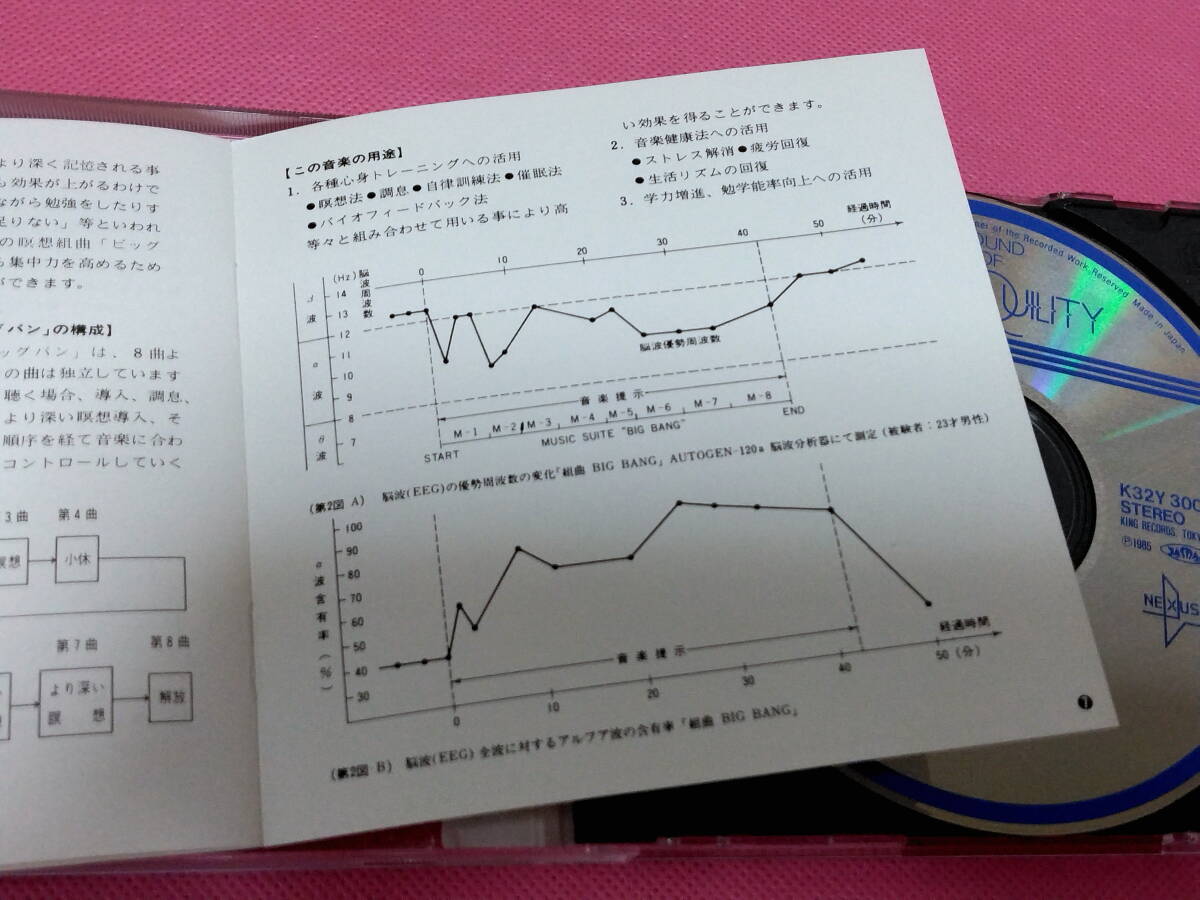 より深く記憶される事
も効果が上がるわけで
ながら勉強をしたりす
足りない」等といわれ
の瞑想組曲「ビッグ
も集中力を高めるため
ができます。
バン」の構成】
ッグバン」は、8曲よ
の曲は独立しています
聴く場合、導入、調息、
より深い瞑想導入、そ
順序を経て音楽に合わ
コントロールしていく
3曲 第4曲
瞑想 小休
第7曲 第8曲
より深い
瞑想
解放
【この音楽の用途】
1. 各種心身トレーニングへの活用
●瞑想法●調息●自律訓練法●催眠法
●バイオフィードバック法
等々と組み合わせて用いる事により高
い効果を得ることができます。
2. 音楽健康法への活用
●ストレス解消●疲労回復
●生活リズムの回復
3. 学力増進、勉学能率向上への活用
(Hz) 脳波周波数
0 10 20 30 40 50 経過時間(分)
β波
α波
θ波
14
13
12
11
10
9
8
7
脳波優勢周波数
音楽提示
M-1 M-2 M-3 M-4 M-5 M-6 M-7 M-8
START MUSIC SUITE "BIG BANG" END
(第2図 A) 脳波(EEG)の優勢周波数の変化「組曲 BIG BANG」AUTOGEN-120a 脳波分析器にて測定(被験者:23才男性)
α波含有率(%)
100
90
80
70
60
50
40
30
音楽提示
経過時間
0 10 20 30 40 50 (分)
(第2図 B) 脳波(EEG)全波に対するアルファ波の含有率「組曲 BIG BANG」
7
ner of the Recorded Work Reserved Made in Japan
OUND
OF
QUILITY
K32Y 300
STEREO
KING RECORDS, TOKY
Ⓟ1985
NEXUS